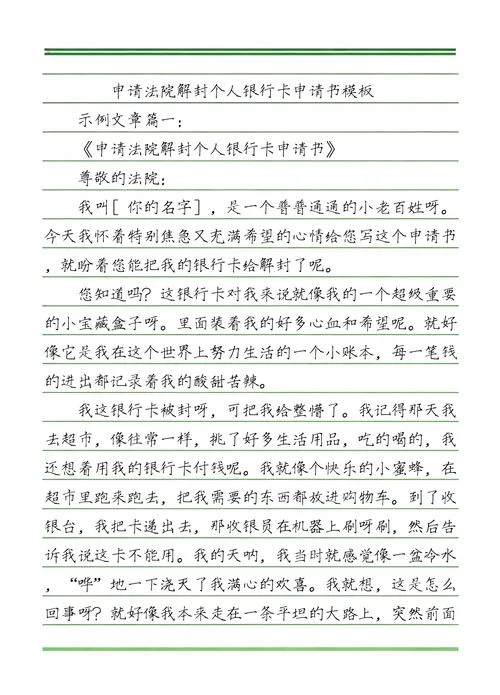 申请法院解封个人银行卡申请书模板
示例文章篇一：
《申请法院解封个人银行卡申请书》
尊敬的法院：
我叫[ 你的名字] ，是一个普普通通的小老百姓呀。
今天我怀着特别焦急又充满希望的心情给您写这个申请书
，就盼着您能把我的银行卡给解封了呢。
您知道吗？这银行卡对我来说就像我的一个超级重要
的小宝藏盒子呀。里面装着我的好多心血和希望呢。就好
像它是我在这个世界上努力生活的一个小账本，每一笔钱
的进出都记录着我的酸甜苦辣。
我这银行卡被封呀，可把我给整懵了。我记得那天我
去超市，像往常一样，挑了好多生活用品，吃的喝的，我
还想着用我的银行卡付钱呢。我就像个快乐的小蜜蜂，在
超市里跑来跑去，把我需要的东西都放进购物车。到了收
银台，我把卡递出去，那收银员在机器上刷呀刷，然后告
诉我说这卡不能用。我的天呐，我当时就感觉像一盆冷水
，“哗”地一下浇灭了我满心的欢喜。我就想，这是怎么
回事呀？就好像我本来走在一条平坦的大路上，突然前面